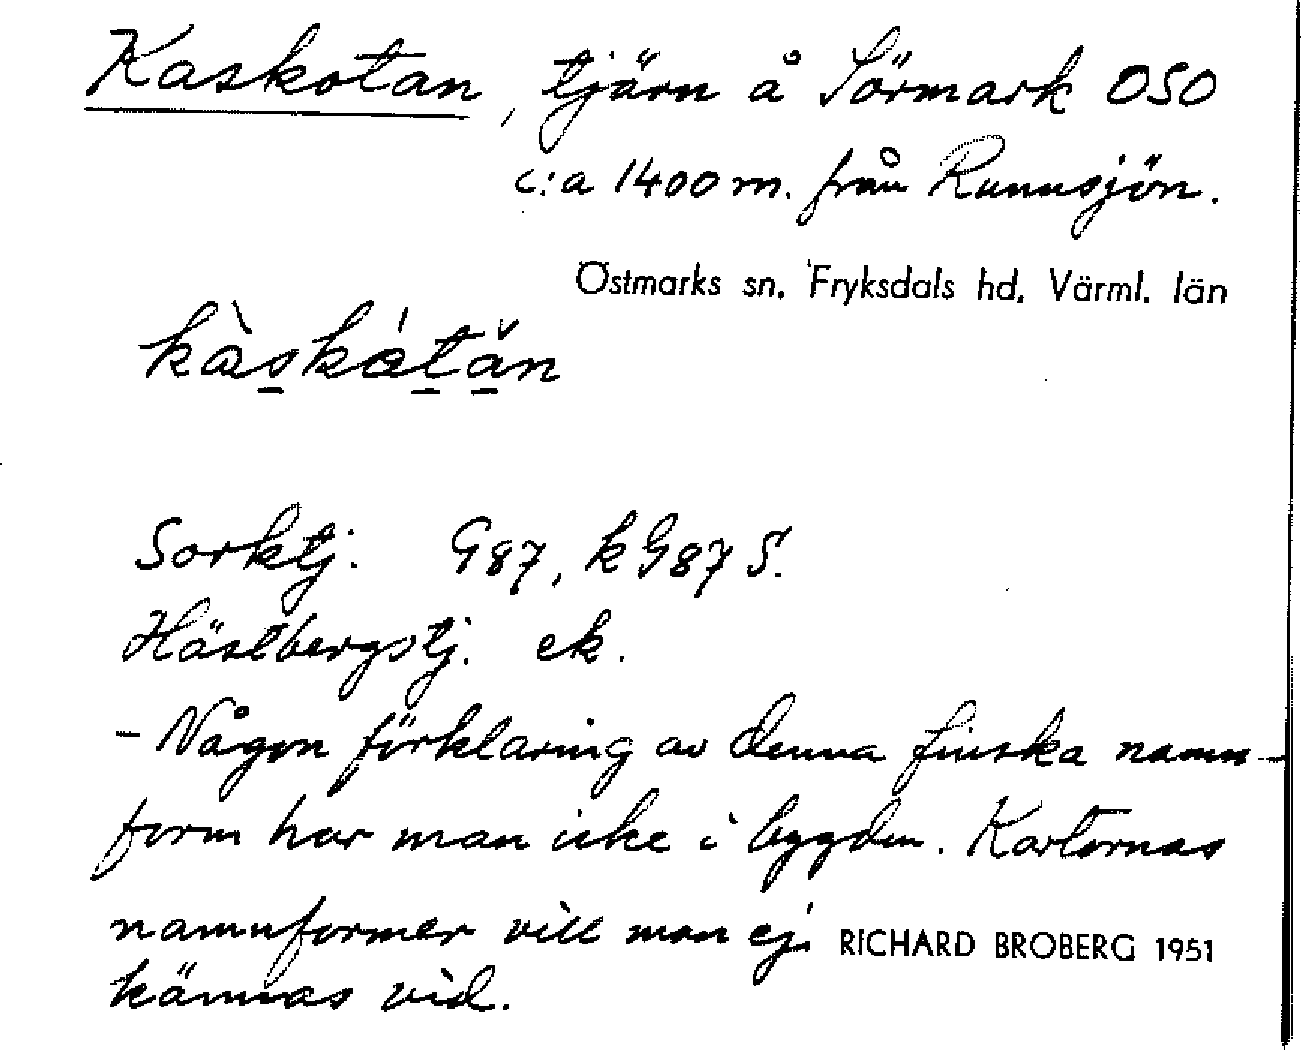 Kaskotan, tjärn å Sörmark OSO
c:a 1400 m. från Runnsjön.
Östmarks sn. Fryksdals hd. Värml. län
kàskátăn
Sorktj. G87, kG87 S.
Hästbergstj. ek.
- Någon förklaring av denna finska namn-
form har man icke i bygden. Kartornas
namnformer vill man ej
RICHARD BROBERG 1951
kännas vid.